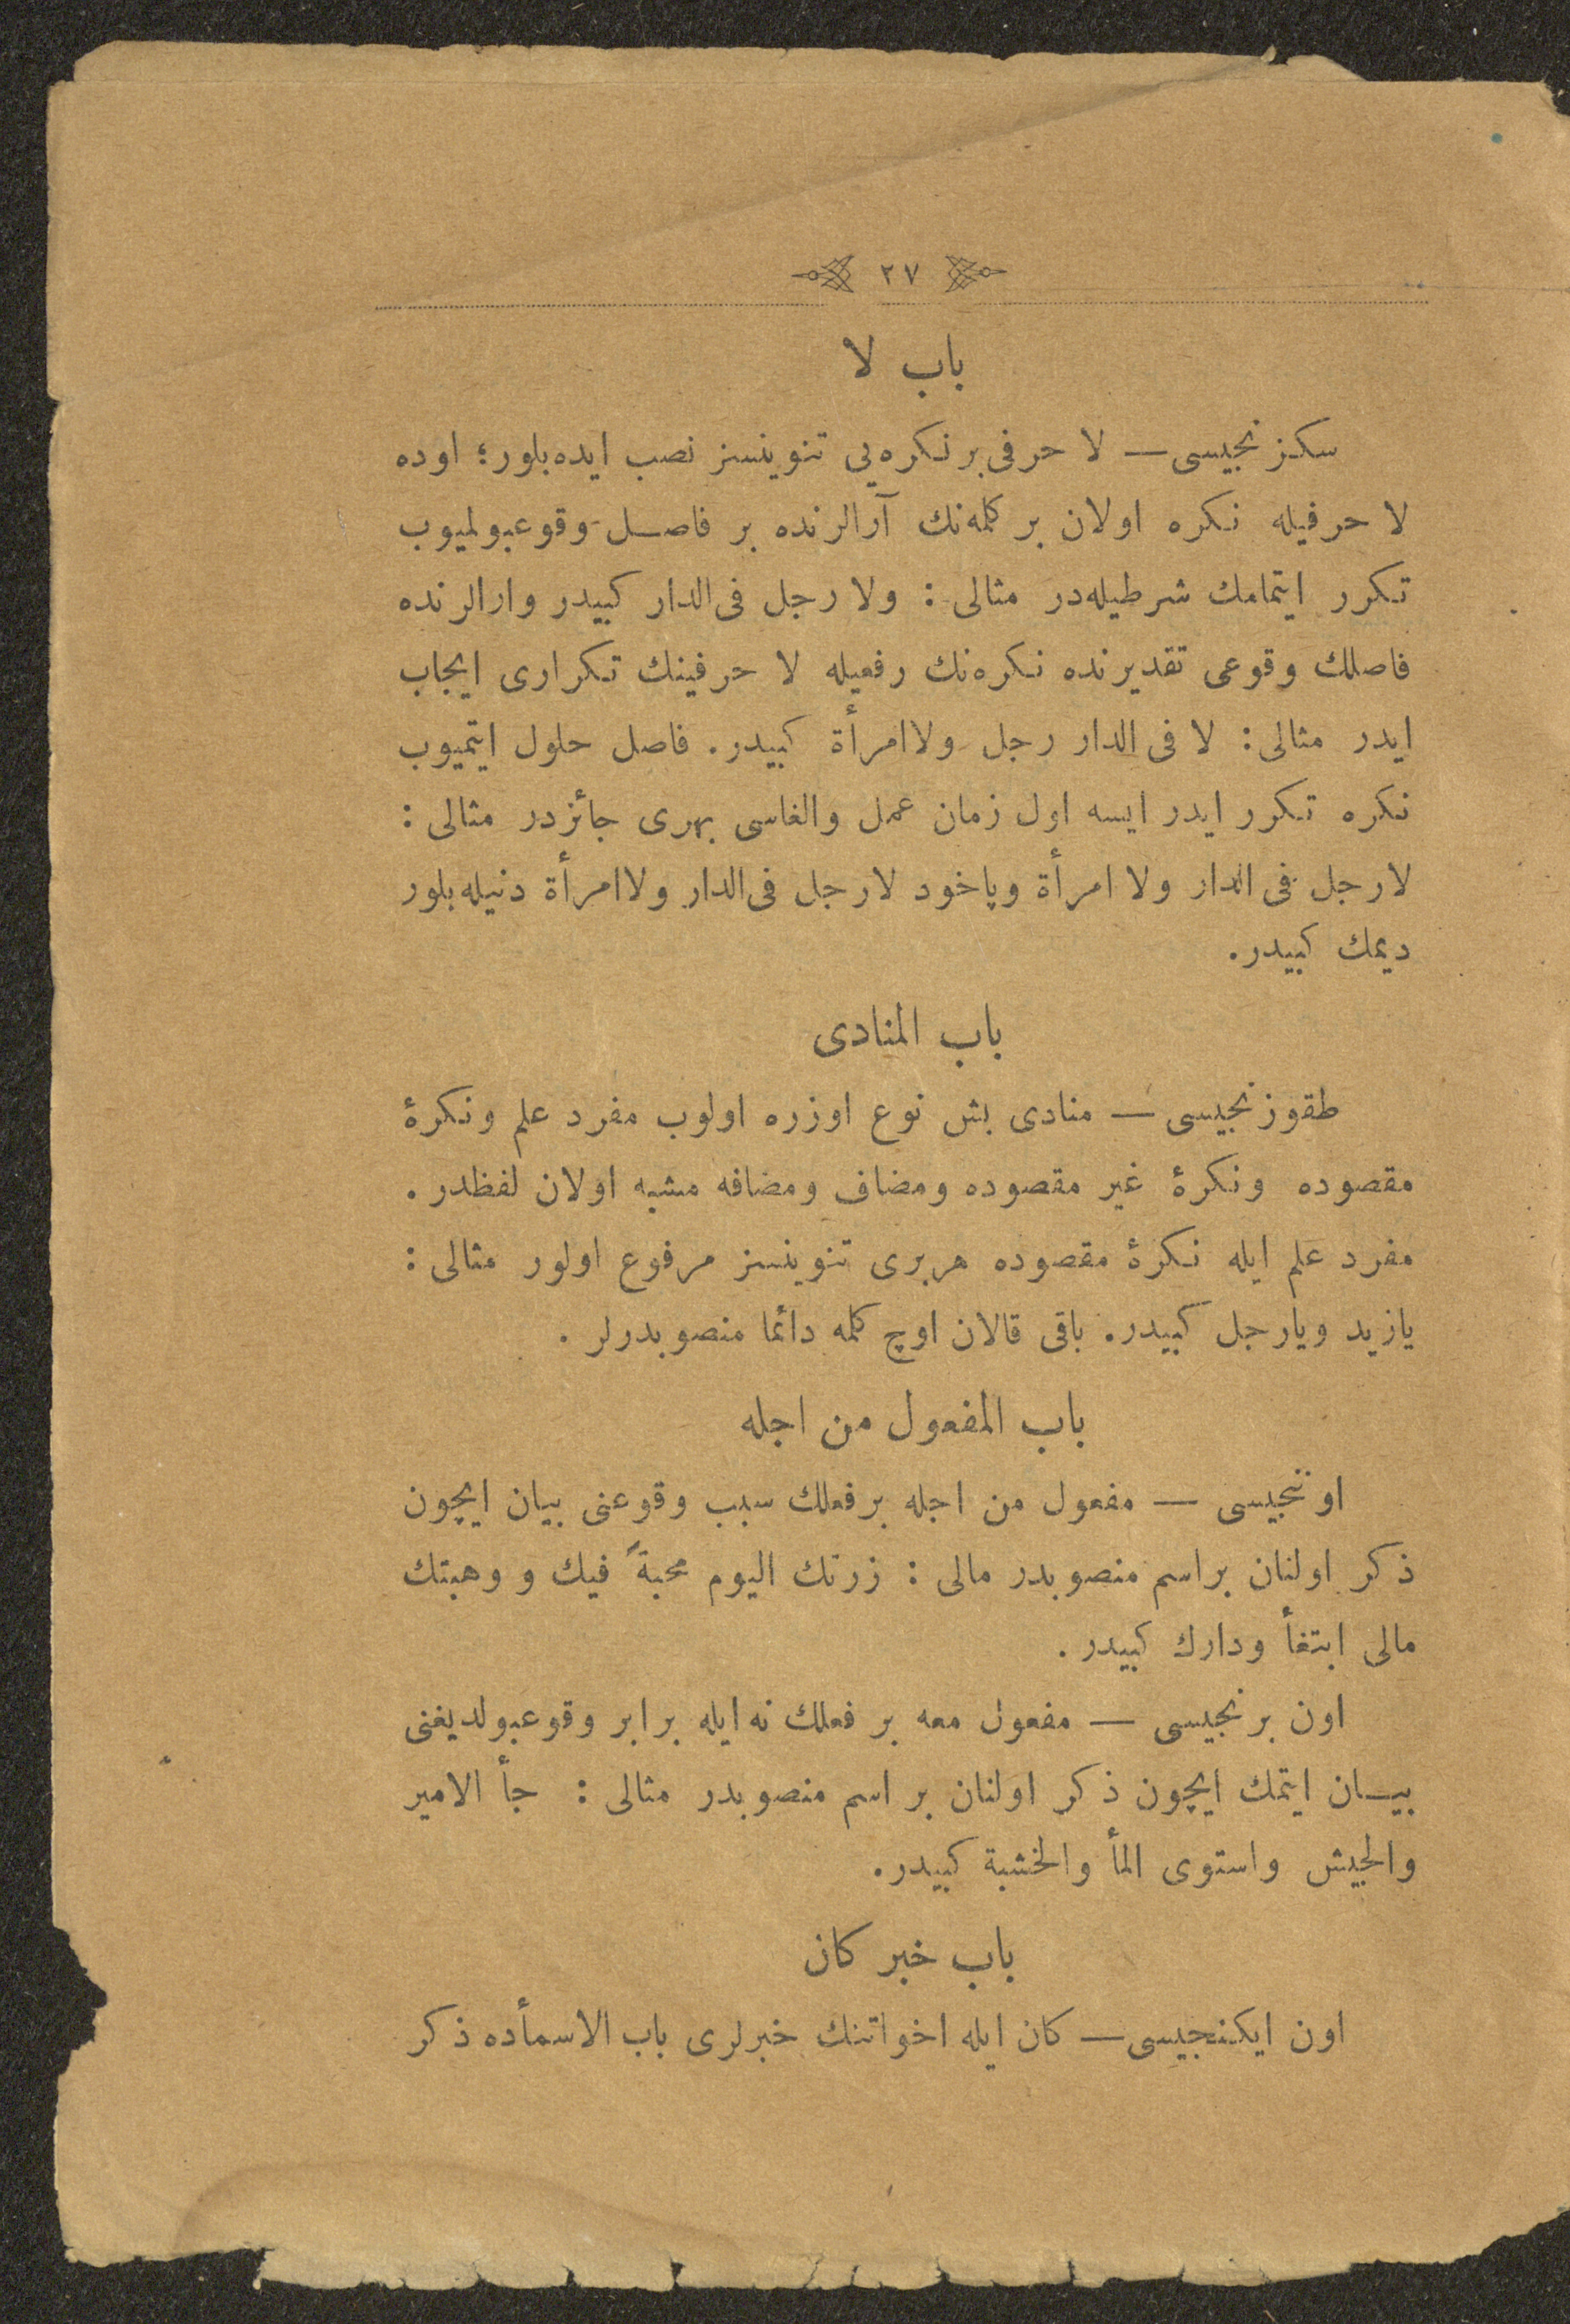 ٢٧
باب لا
سكزنجیسی — لا حرفی بر نكره‌یی تنوینسز نصب ایده‌بلور؛ اوده
لا حرفیله نكره اولان بر كله‌نك آرالرنده بر فاصل وقوعبولمیوب
تكرر ایتمامك شرطیله‌در مثالی : ولا رجل فی‌الدار كبیدر وارالرنده
فاصلك وقوعی تقدیرنده نكره‌نك رفعیله لا حرفینك تكراری ایجاب
ایدر مثالی : لا فی الدار رجل ولاامرأة كبیدر. فاصل حلول ایتمیوب
نكره تكرر ایدر ایسه اول زمان عمل والغاسی بهری جائزدر مثالی :
لارجل فی الدار ولا امرأة ویاخود لارجل فی‌الدار ولاامرأة دنیله‌بلور
دیمك كبیدر.
باب المنادی
طقوزنجیسی — منادی بش نوع اوزره اولوب مفرد علم ونكرۀ
مقصوده ونكرۀ غیر مقصوده ومضاف ومضافه مشبه اولان لفظدر.
مفرد علم ایله نكرۀ مقصوده هربری تنوینسز مرفوع اولور مثالی :
یازید ویارجل كبیدر. باقی قالان اوچ كله دائما منصوبدرلر .
باب المفعول من اجله
اوننجیسی — مفعول من اجله برفعلك سبب وقوعنی بیان ایچون
ذكر اولنان براسم منصوبدر مالی : زرتك الیوم محبةً فیك و وهبتك
مالی ابتغأ ودارك كبیدر .
اون برنجیسی — مفعول معه بر فعلك نه ایله برابر وقوعبولدیغنی
بیان ایتمك ایچون ذكر اولنان بر اسم منصوبدر مثالی : جأ الامیر
والجیش واستوی المأ والخشبة كبیدر.
باب خبر كان
اون ایكنجیسی — كان ایله اخواتنك خبرلری باب الاسمأده ذكر